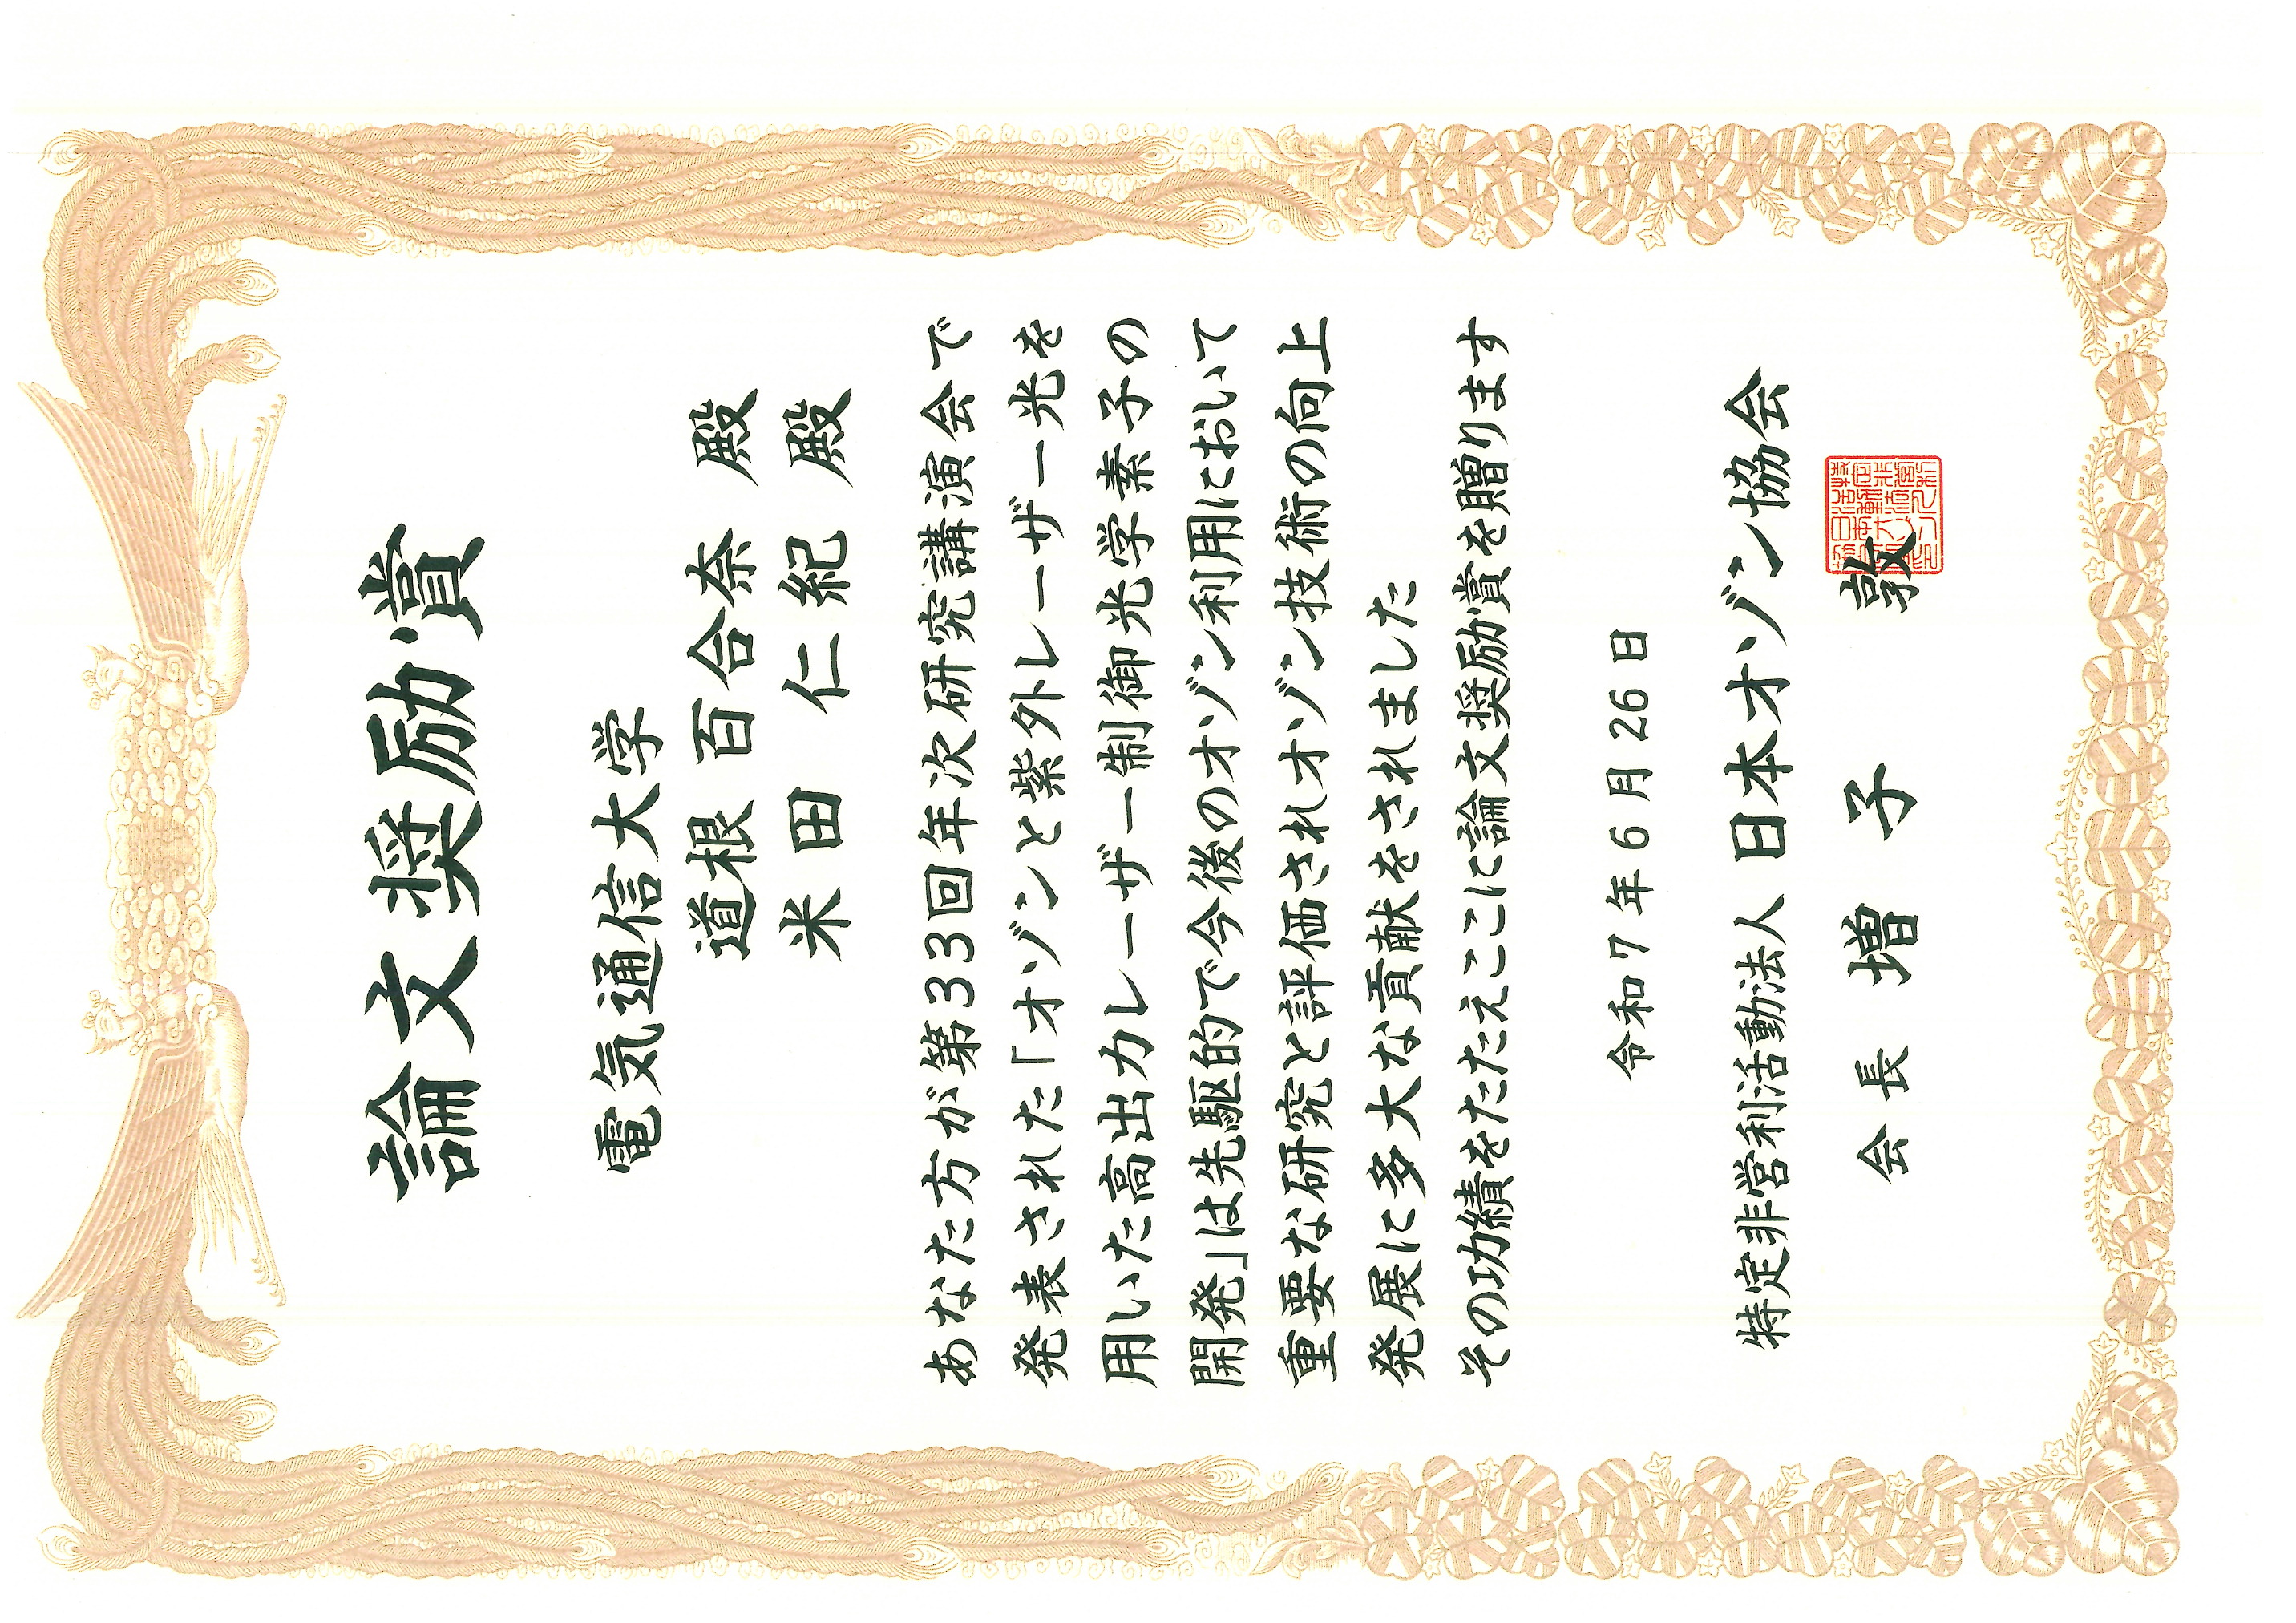 論文奨励賞
電気通信大学
道根 百合奈 殿
米田 仁紀 殿
あなた方が第33回年次研究講演会で
発表された「オゾンと紫外トレーーザー光を
用いた高出力レーーザー制御光学素子の
開発」は先駆的で今後のオゾン利用において
重要な研究と評価されオゾン技術の向上
発展に多大な貢献をされました
その功績をたたえここに論文奨励賞を贈ります
令和7年6月26日
特定非営利活動法人 日本オゾン協会
会長 増子 敦